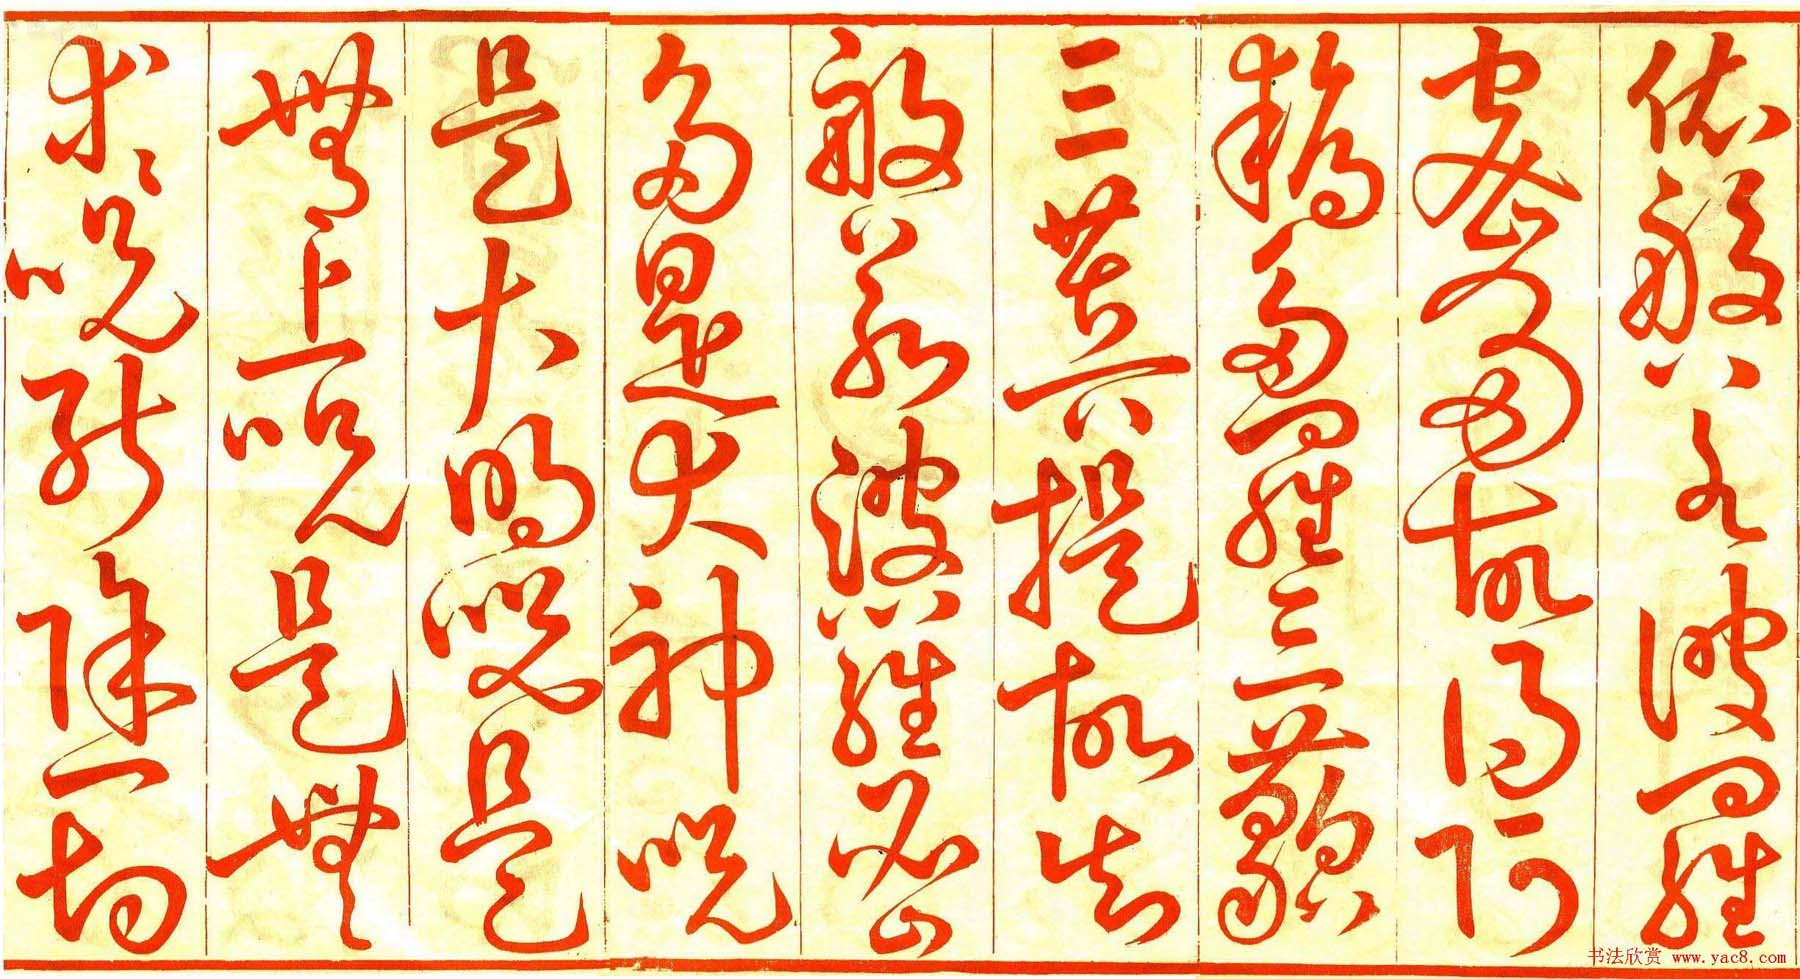 依般若波羅
密多故得阿
耨多羅三藐
三菩提故知
般若波羅密
多是大神咒
是大明咒是
無上咒是無
等々咒能除一切
书法欣赏 www.yac8.com